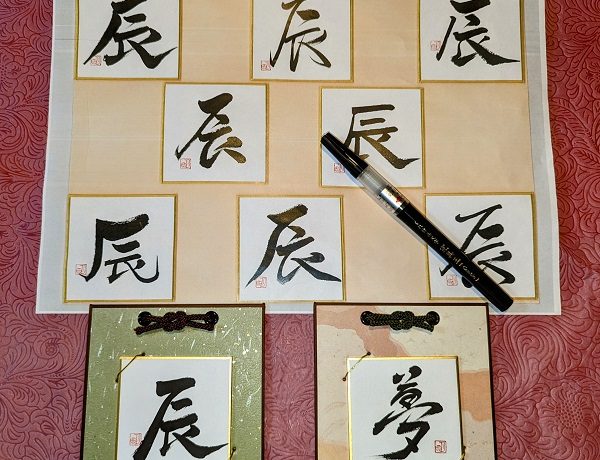 辰 辰 辰
辰 辰
辰 辰 辰
辰 夢